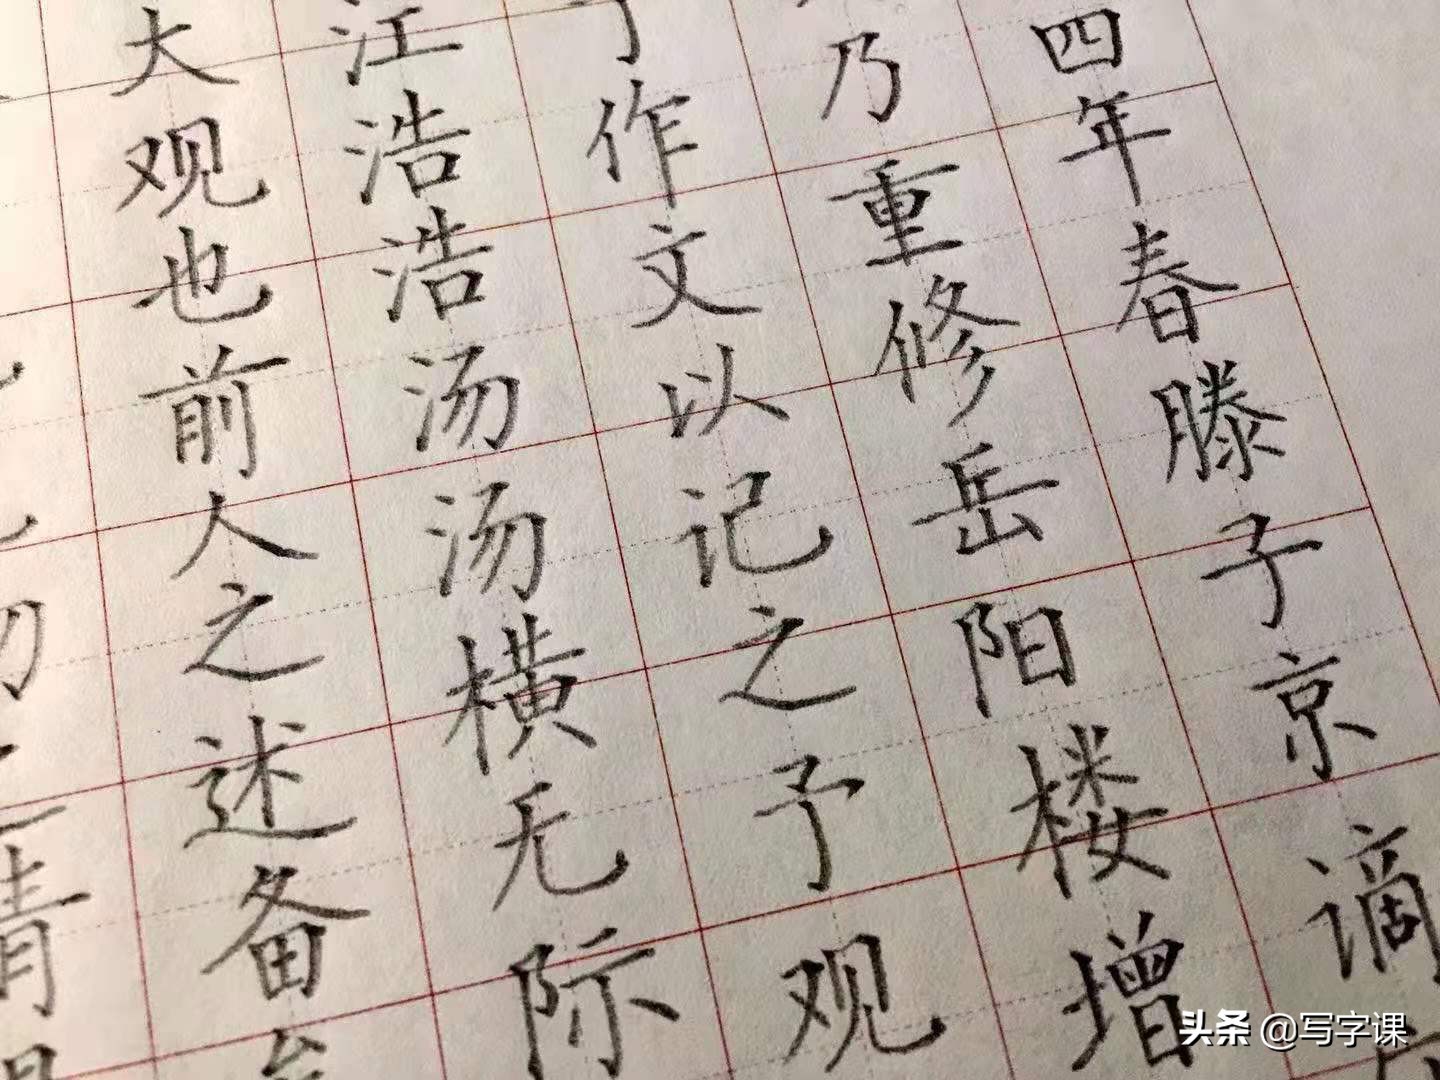 四年春滕子京谪
乃重修岳阳楼增
作文以记之予观
江浩浩汤汤横无际
大观也前人之述备
头条 @写字课